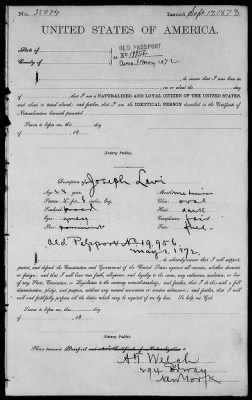 No. 35074 Issued Sept 17, 1873
UNITED STATES OF AMERICA.
State of
County of
OLD PASSPORT
No. 19956
Dated May 1, 1872
I, do swear that I was born in
on or about the day of
that I am a NATURALIZED AND LOYAL CITIZEN OF THE UNITED STATES,
and about to travel abroad; and further, that I am the IDENTICAL PERSON described in the Certificate of
Naturalization herewith presented.
Sworn to before me, this day
of 18
Notary Public.
Description of Joseph Levi
Age: years
Stature: feet inches, Eng.
Forehead: broad
Eyes: grey
Nose: prominent
Mouth:
Chin: oval
Hair: dark
Complexion: fair
Face: full
Old Passport No 19,956.
May 1, 1872.
do solemnly swear that I will support,
protect, and defend the Constitution and Government of the United States against all enemies, whether domestic
or foreign; and that I will bear true faith, allegiance, and loyalty to the same, any ordinance, resolution, or law
of any State, Convention, or Legislature to the contrary notwithstanding; and further, that I do this with a full
determination, pledge, and purpose, without any mental reservation or evasion whatsoever; and further, that I will
well and faithfully perform all the duties which may be required of me by law. So help me God.
Sworn to before me, this day
of 18
Notary Public.
Please transmit Passport
A. T. Welch
294 B'dway
New York